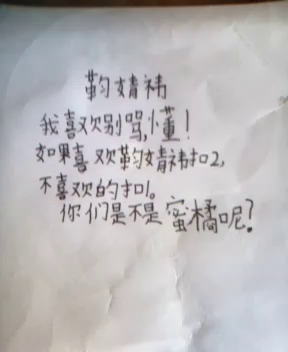 鞠婧祎
我喜欢别骂,懂!
如果喜欢鞠婧祎扣2,
不喜欢的扣1。
你们是不是蜜橘呢?